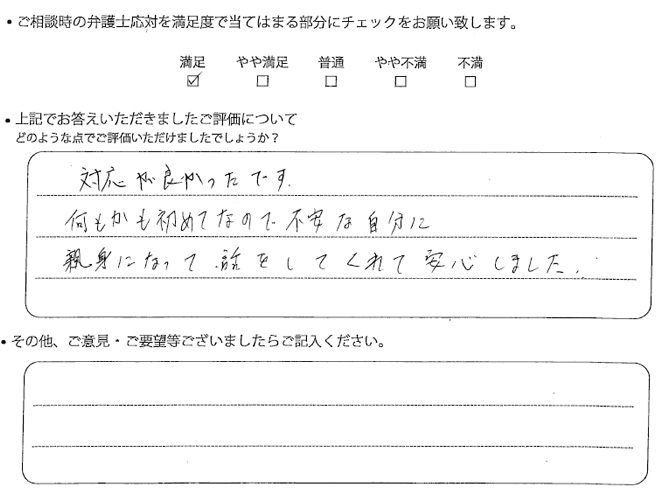 ・ご相談時の弁護士応対を満足度で当てはまる部分にチェックをお願い致します。
満足 やや満足 普通 やや不満 不満
☑ □ □ □ □
・上記でお答えいただきましたご評価について
どのような点でご評価いただけましたでしょうか？
対応が良かったです.
何もかも初めてなので不安な自分に
親身になって話をしてくれて安心しました.
・その他、ご意見・ご要望等ございましたらご記入ください。